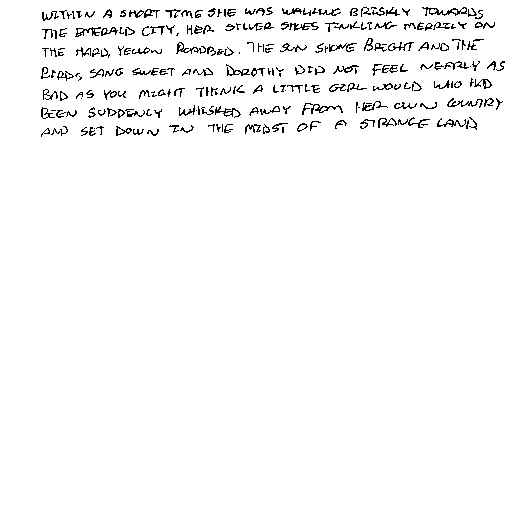 WITHIN A SHORT TIME SHE WAS WALKING BRISKLY TOWARDS
THE EMERALD CITY, HER SILVER SHOES TINKLING MERRILY ON
THE HARD, YELLOW ROADBED. THE SUN SHONE BRIGHT AND THE
BIRDS, SANG SWEET AND DOROTHY DID NOT FEEL NEARLY AS
BAD AS YOU MIGHT THINK A LITTLE GIRL WOULD WHO HAD
BEEN SUDDENLY WHISKED AWAY FROM HER OWN COUNTRY
AND SET DOWN IN THE MIDST OF A STRANGE LAND